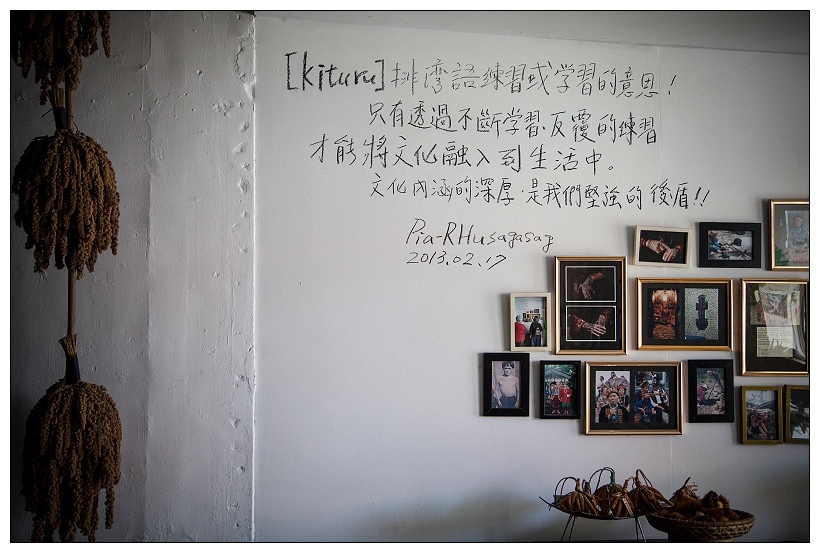 [kituru] 排湾語練習或学習的意思！
只有透過不斷学習、反覆的練習
才能將文化融入到生活中。
文化內涵的深厚，是我們堅強的後盾!!
Pia-RHusagasag
2013.02.17